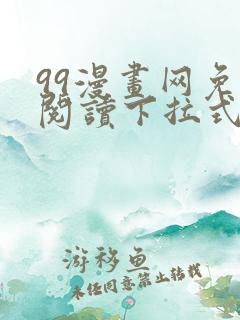 99漫畫网免
閱讀下拉式
游移鱼
未经同意禁止转载